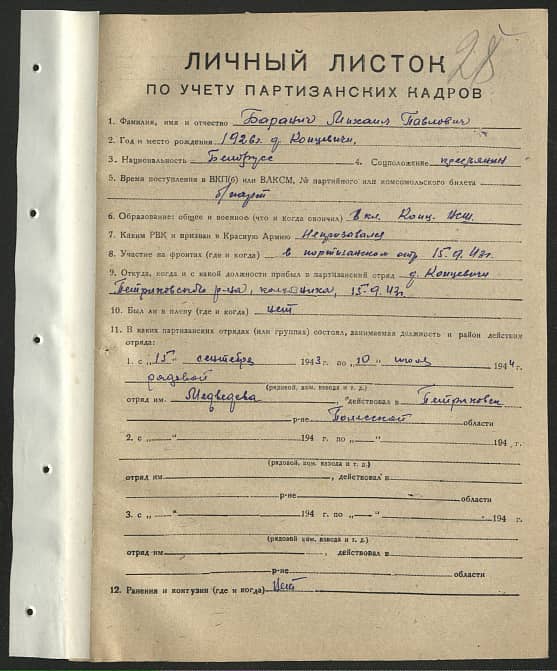 28
ЛИЧНЫЙ ЛИСТОК
ПО УЧЕТУ ПАРТИЗАНСКИХ КАДРОВ
1. Фамилия, имя и отчество Баранич Михаил Павлович
2. Год и место рождения 1926 г. д. Концевичи,
3. Национальность Белорусс 4. Соцположение крестьянин
5. Время поступления в ВКП(б) или ВЛКСМ, № партийного или комсомольского билета
б/парт
6. Образование: общее и военное (что и когда окончил) 8 кл. Конц. НСШ.
7. Каким РВК и призван в Красную Армию Непризвался
8. Участие на фронтах (где и когда) в партизанском отр. 15.9.43г.
9. Откуда, когда и с какой должности прибыл в партизанский отряд д. Концевичи
Петриковского р-на, 15.9.43г.
10. Был ли в плену (где и когда) нет
11. В каких партизанских отрядах (или группах) состоял, занимаемая должность и район действия
отряда:
1. с „15" сентября 1943 г. по „10" июля 1944 г.
рядовой
(рядовой, ком. взвода и т. д.)
отряд им. Медведева, действовал в Петриковск
р-не Полесской области
2. с „ " 194 г. по „ " 194 г.
(рядовой, ком. взвода и т. д.)
отряд им. , действовал в
р-не области
3. с „ " 194 г. по „ " 194 г.
(рядовой ком. взвода и т. д.)
отряд им. , действовал в
р-не области
12. Ранения и контузии (где и когда) Нет